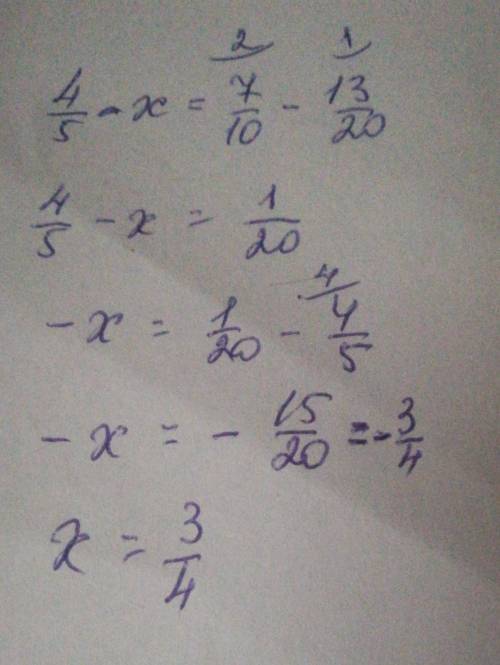 2 1
4/5 - x = 7/10 - 13/20
4/5 - x = 1/20
4
- x = 1/20 - 4/5
- x = - 15/20 = - 3/4
x = 3/4